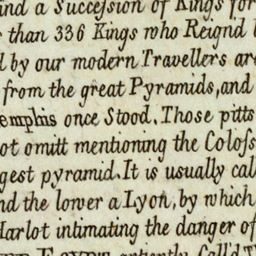 and a Succession of Kings for
than 336 Kings who Reign'd
by our modern Travellers are
from the great Pyramids, and
emphis once Stood. Those pitts
ot omitt mentioning the Coloss
gest pyramid. It is usually cal
nd the lower a Lyon, by which
Harlot intimating the danger of
EGYPT antiently Call'd